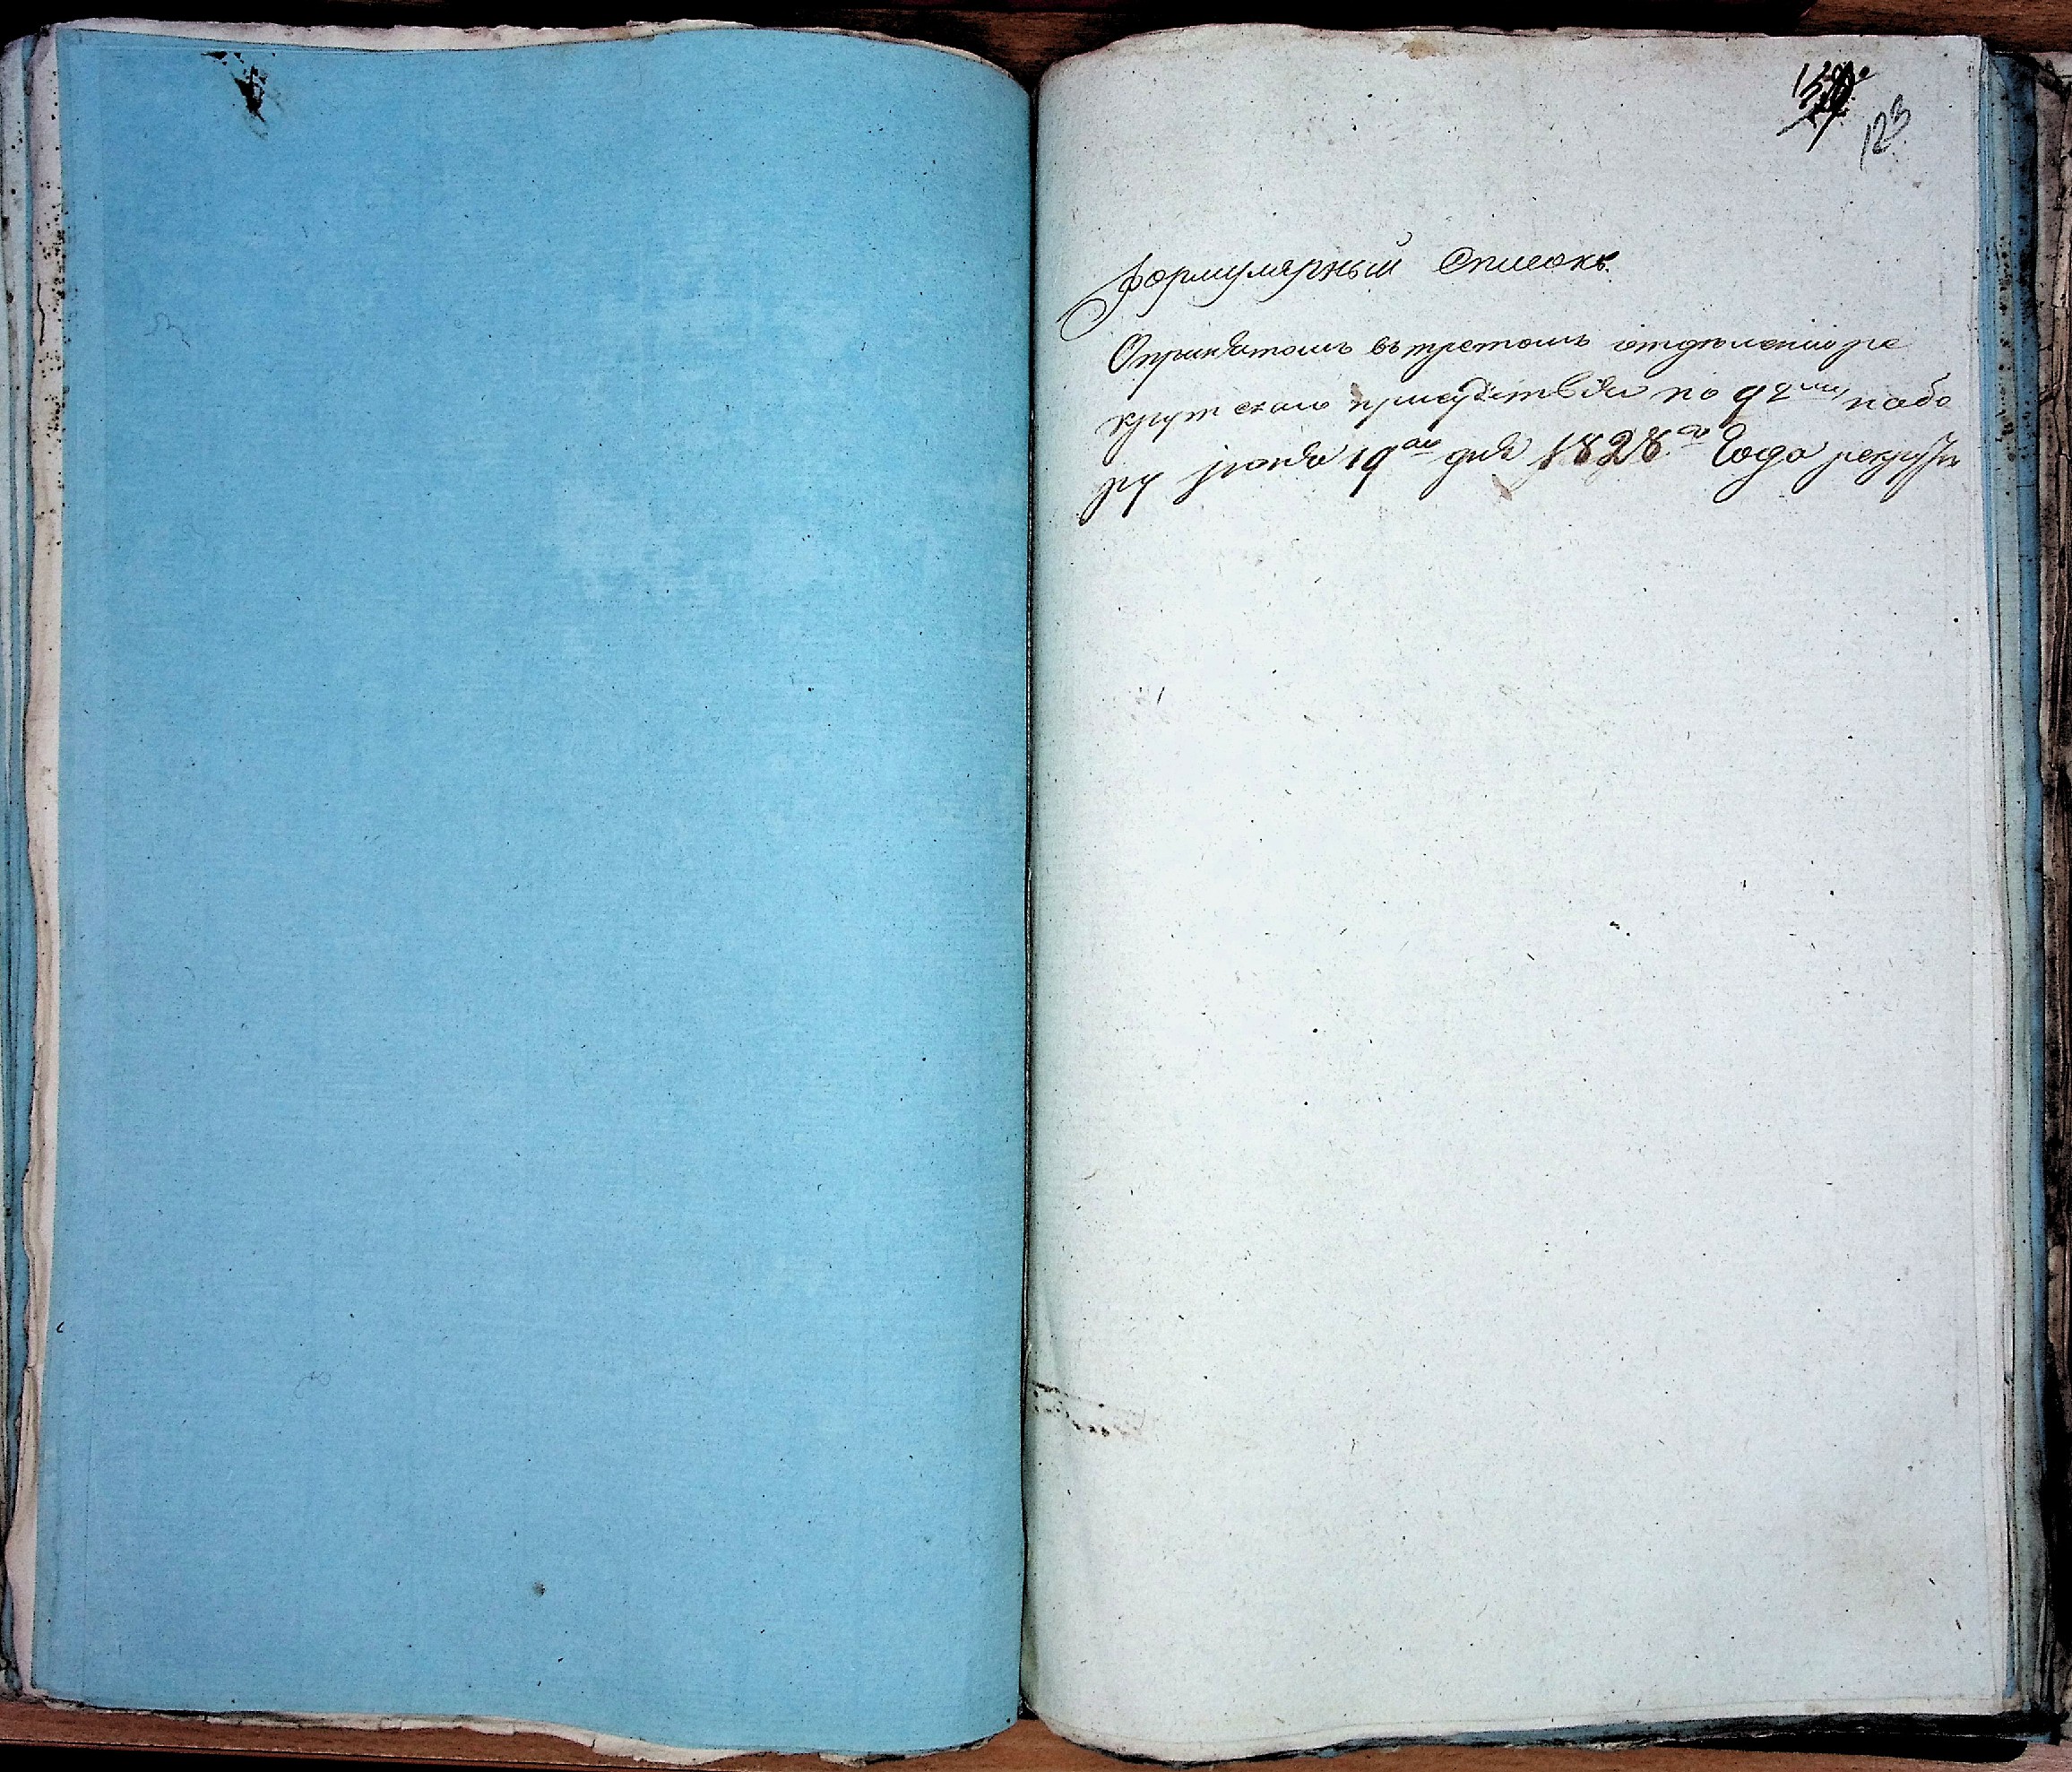 123
Формулярный Списокъ.
Опринятомъ въ третомъ отделении ре
крутскаго присудствия по 92му набо
ру июня 19го дня 1828го Года рекрутъ